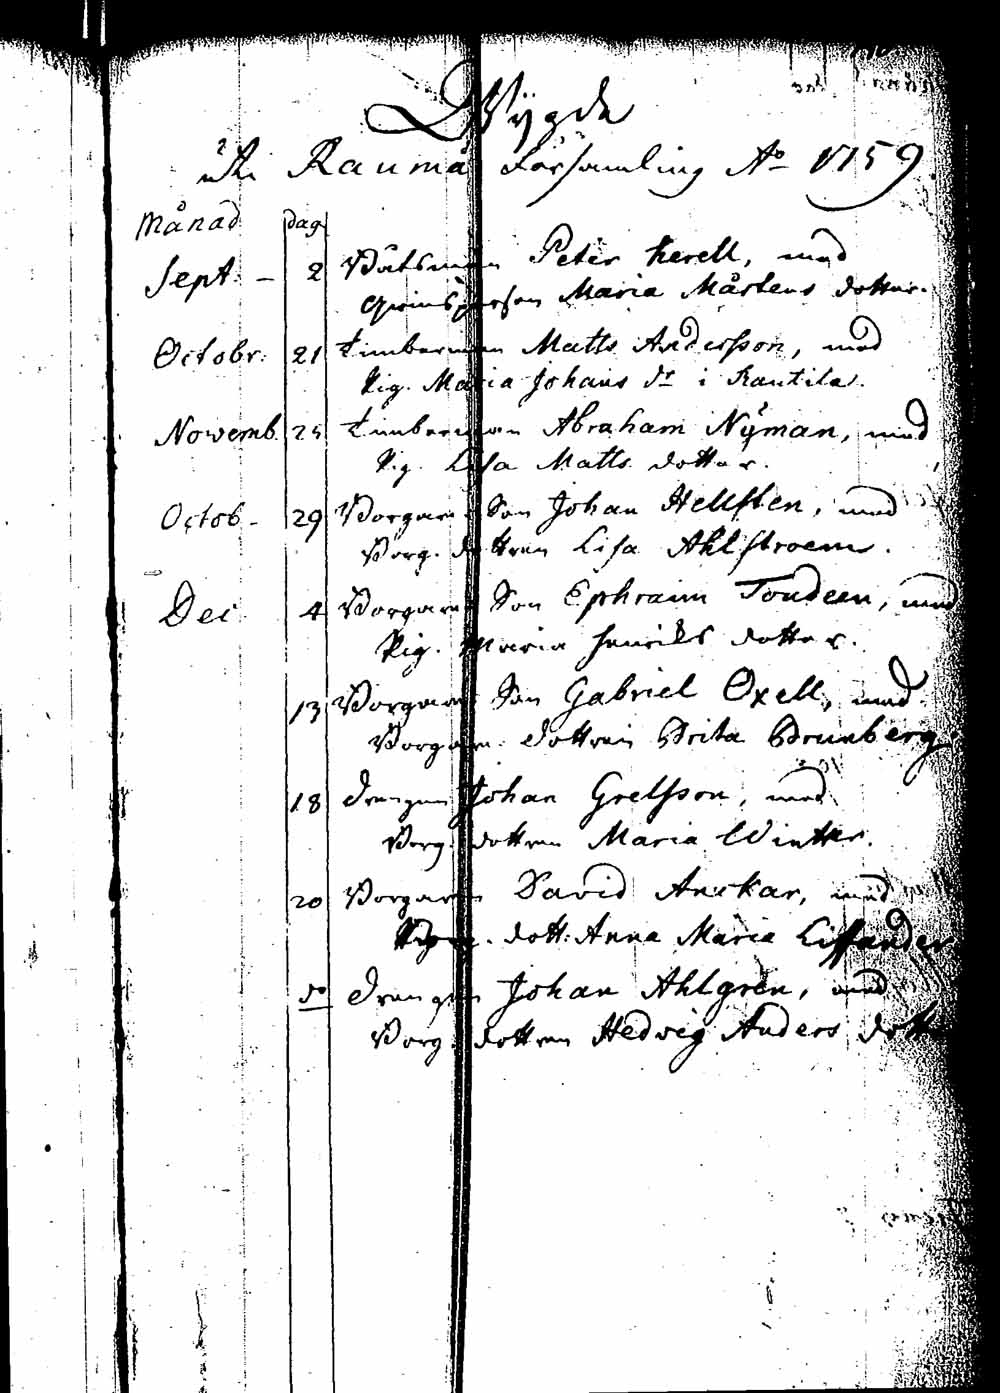 Wygde
uti Raumå Församling Ao 1759.
Månad dag
Sept. - 2 Båtsman Peter Kerell, med
Qwinsperson Maria Mårtens dotter.
Octobr. 21 Timberman Matts Andersson, med
Pig. Maria Johans dr i Rantila.
Novemb. 25 Timberman Abraham Nÿman, med
Pig. Lisa Matts dotter.
Octob - 29 Borgare Son Johan Hellsten, med
Borg. dottren Lisa Ahlstroem.
Dec 4 Borgare Son Ephraim Tondeen, med
Pig. Maria Henriks dotter.
13 Borgare Son Gabriel Oxell, med
Borgare dottren Brita Brunberg.
18 Drengen Johan Grelsson, med
Borg. dottren Maria Winter.
20 Borgaren David Anckar, med
dott: Anna Maria Lissander
do Drengen Johan Ahlgren, med
Borg. dottren Hedvig Anders dott